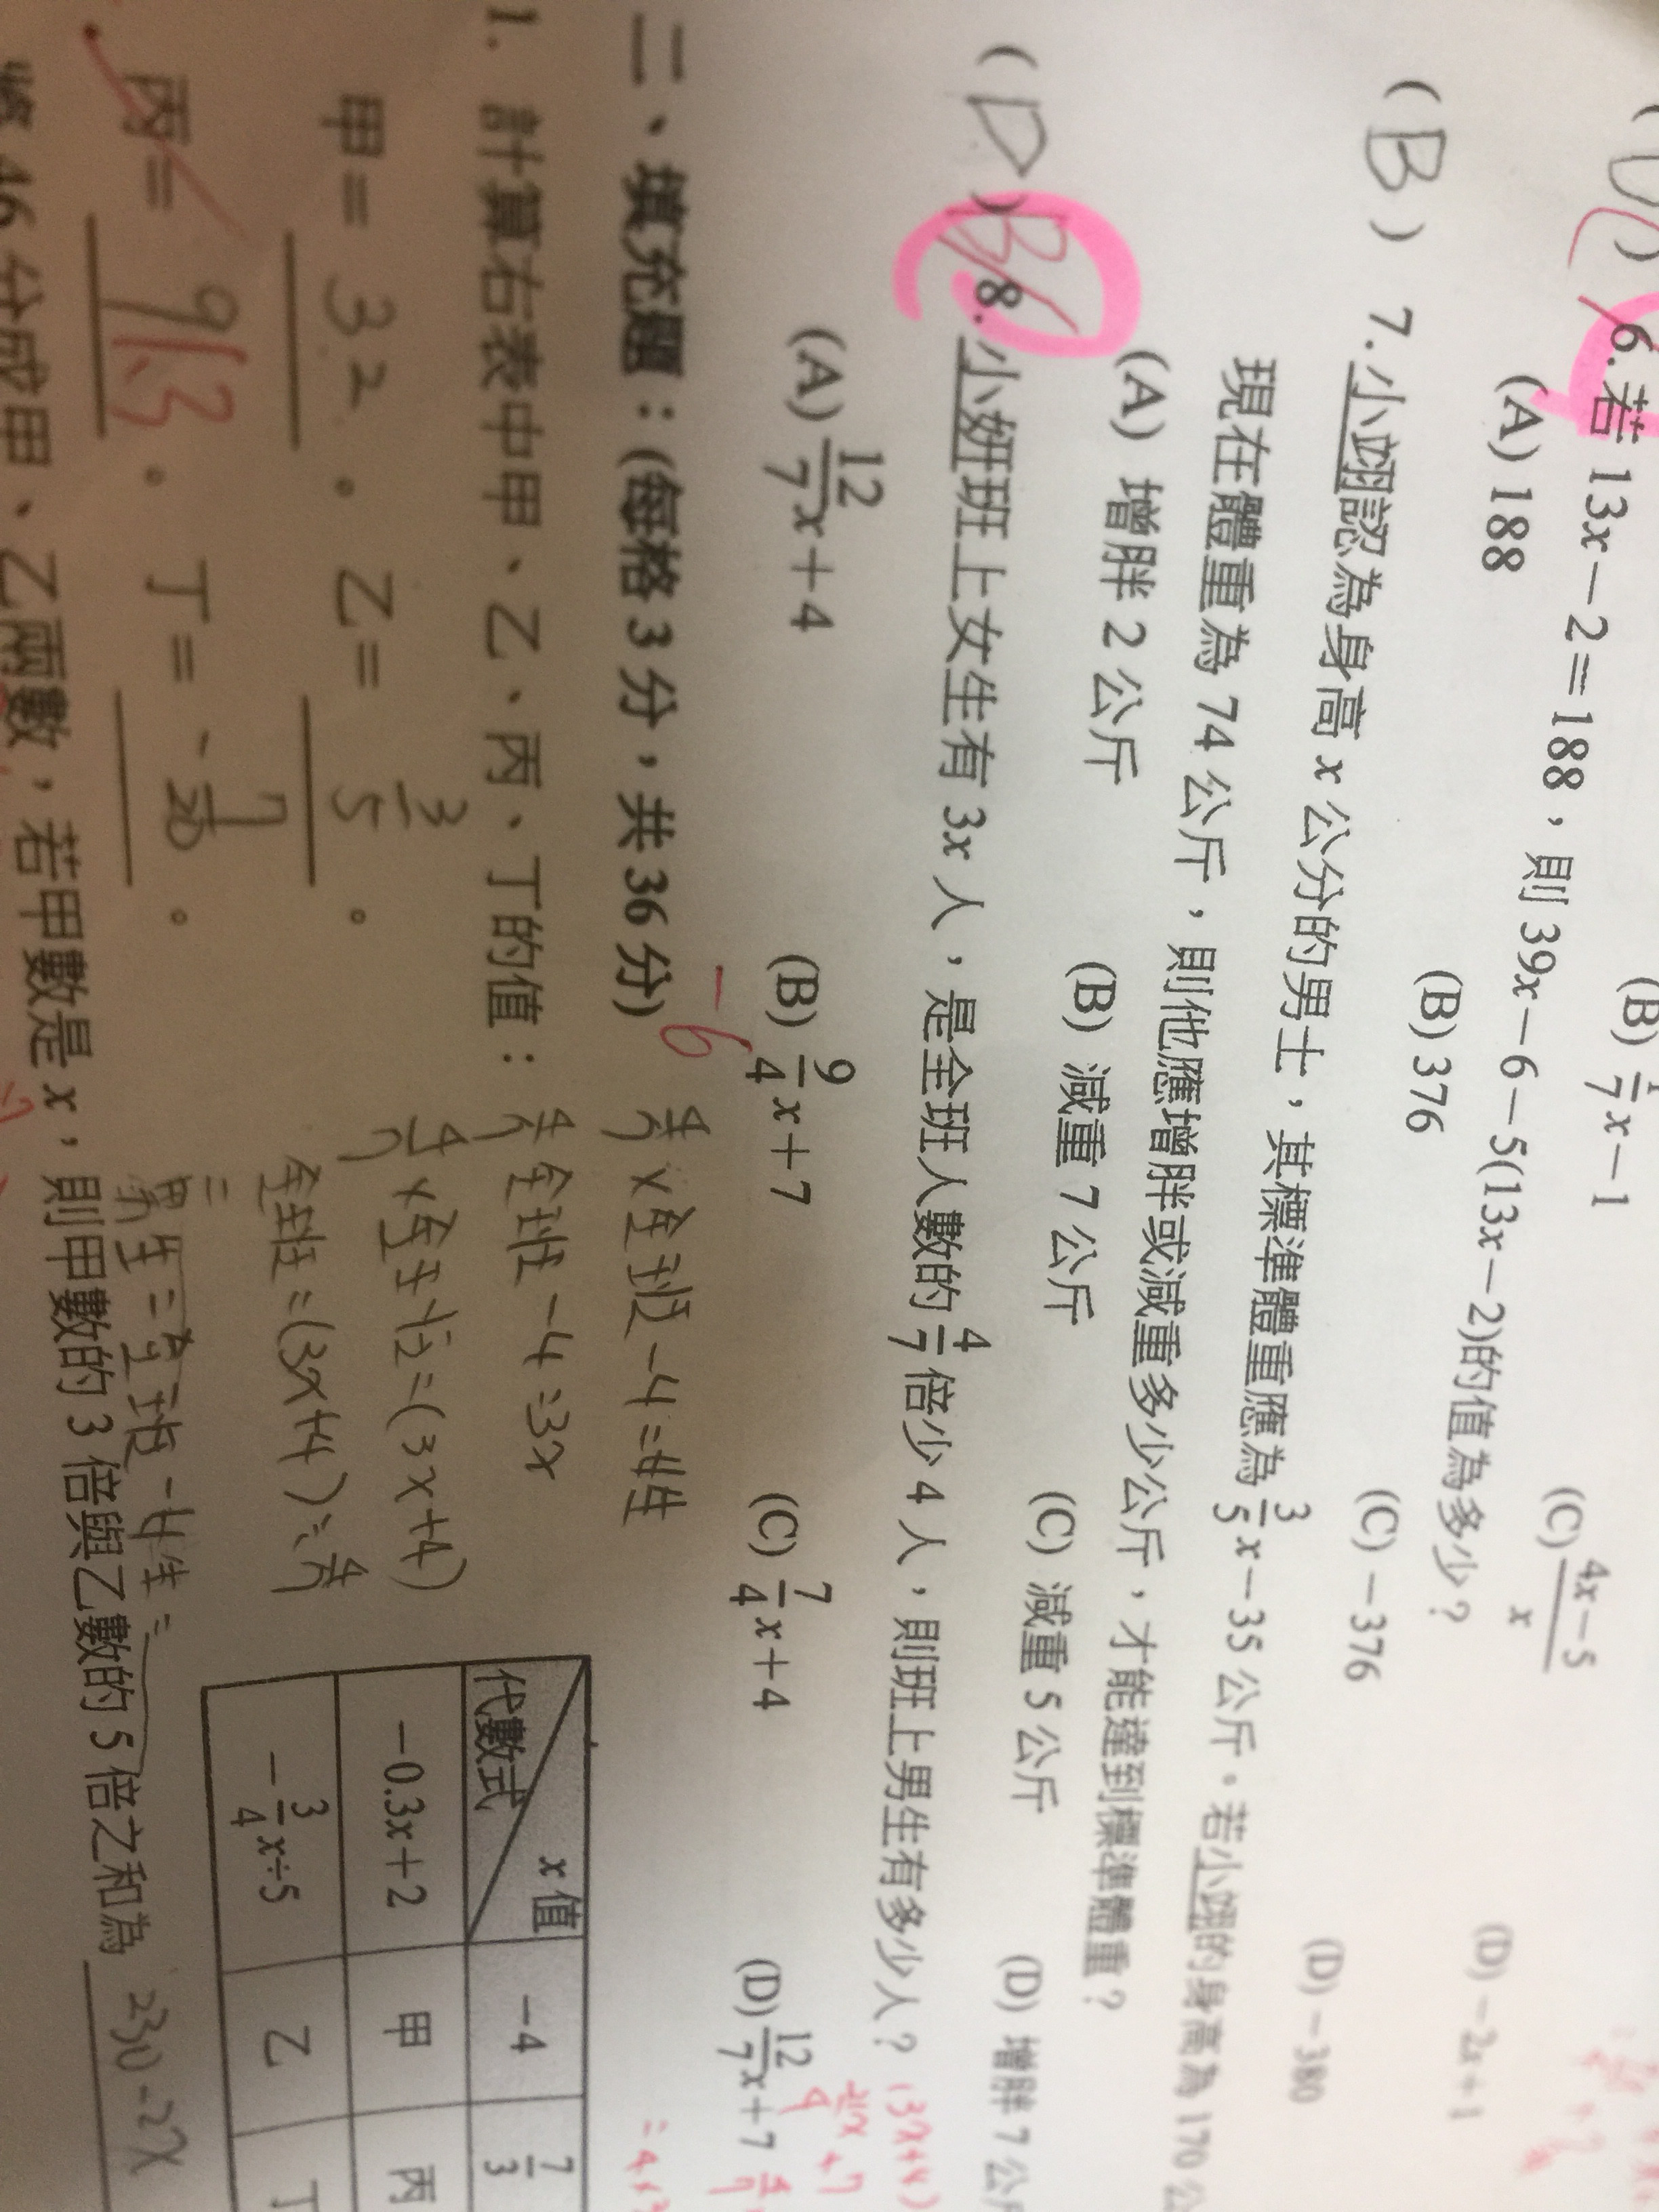 (B) 1/7 x－1
(C) 4x－5/x
(D) －2x＋1
6. 若 13x－2＝188，則 39x－6－5(13x－2)的值為多少？
(A) 188
(B) 376
(C) －376
(D) －380
( B ) 7. 小翊認為身高 x 公分的男士，其標準體重應為 3/5 x－35 公斤。若小翊的身高為 170 公
現在體重為 74 公斤，則他應增胖或減重多少公斤，才能達到標準體重？
(A) 增胖 2 公斤
(B) 減重 7 公斤
(C) 減重 5 公斤
(D) 增胖 7 公斤
( D ) B 8. 小妍班上女生有 3x 人，是全班人數的 4/7 倍少 4 人，則班上男生有多少人？
(3x+4)
(A) 12/7 x＋4
(B) 9/4 x＋7
(C) 7/4 x＋4
(D) 12/7 x＋7
二、填充題：(每格 3 分，共 36 分)
－6
4/7 x全班－4=女生
1. 計算右表中甲、乙、丙、丁的值：
4/7 全班－4=3x
甲＝ 3.2 。乙＝ 3/5 。
4/7 x全班=(3x+4)
丙＝ 1.3 。丁＝ -7/20 。
全班=(3x+4)÷4/7
代數式 x 值 －4 7/3
－0.3x＋2 甲 丙
－3/4 x÷5 乙 丁
46 分成甲、乙兩數，若甲數是 x，則甲數的 3 倍與乙數的 5 倍之和為 230-2x